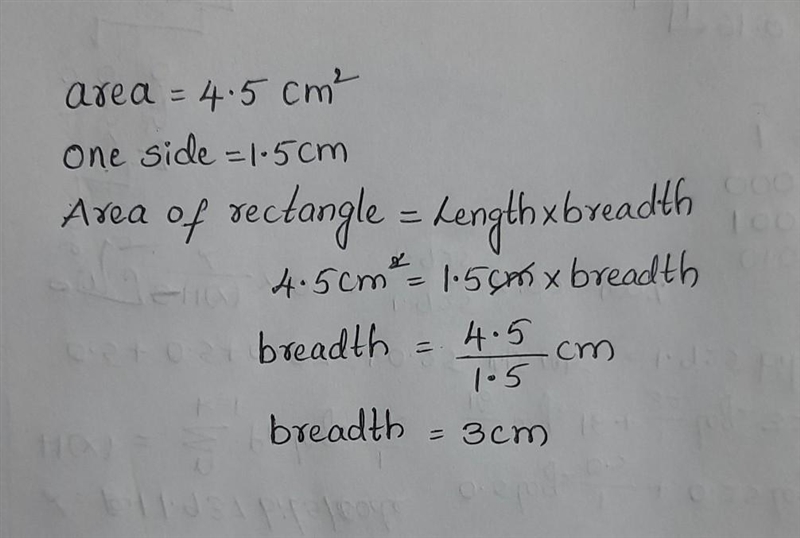 area = 4.5 cm²
one side = 1.5cm
Area of rectangle = Length x breadth
4.5cm² = 1.5cm x breadth
breadth = 4.5/1.5 cm
breadth = 3cm